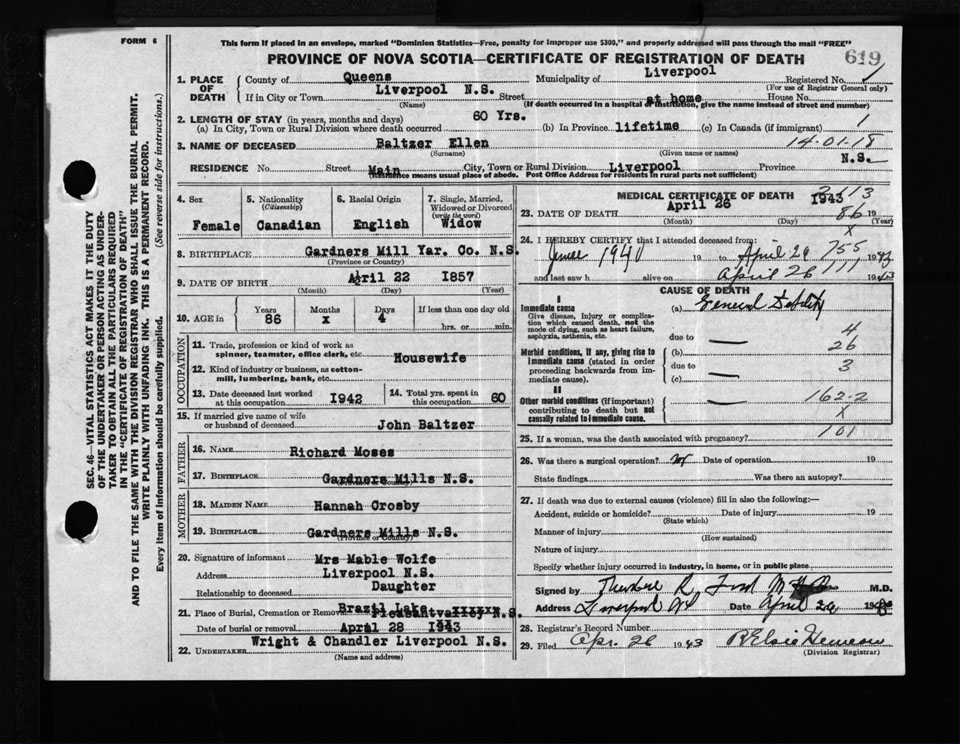 FORM 6
This form if placed in an envelope, marked "Dominion Statistics—Free, penalty for improper use $300," and properly addressed will pass through the mail "FREE"
PROVINCE OF NOVA SCOTIA—CERTIFICATE OF REGISTRATION OF DEATH
619
SEC. 46—VITAL STATISTICS ACT MAKES IT THE DUTY
OF THE UNDERTAKER OR PERSON ACTING AS UNDER-
TAKER TO OBTAIN ALL THE PARTICULARS REQUIRED
IN THE "CERTIFICATE OF REGISTRATION OF DEATH"
AND TO FILE THE SAME WITH THE DIVISION REGISTRAR WHO SHALL ISSUE THE BURIAL PERMIT.
WRITE PLAINLY WITH UNFADING INK. THIS IS A PERMANENT RECORD.
Every item of information should be carefully supplied. (See reverse side for instructions.)
1. PLACE OF DEATH County of Queens Municipality of Liverpool Registered No. 1
(For use of Registrar General only)
If in City or Town Liverpool N.S. Street at home House No.
(Name) (If death occurred in a hospital or institution, give the name instead of street and number)
2. LENGTH OF STAY (in years, months and days)
(a) In City, Town or Rural Division where death occurred 60 Yrs. (b) In Province lifetime (c) In Canada (if immigrant) 1
3. NAME OF DECEASED Baltzer Ellen 14-01-18
(Surname) (Given name or names)
RESIDENCE No. Street Main City, Town or Rural Division Liverpool Province N.S.
(Residence means usual place of abode. Post Office Address for residents in rural parts not sufficient)
4. Sex Female
5. Nationality (Citizenship) Canadian
6. Racial Origin English
7. Single, Married, Widowed or Divorced (write the word) Widow
8. BIRTHPLACE Gardners Mill Yar. Co. N.S.
(Province or Country)
9. DATE OF BIRTH April 22 1857
(Month) (Day) (Year)
10. AGE in Years 86 Months x Days 4 If less than one day old hrs. or min.
OCCUPATION
11. Trade, profession or kind of work as spinner, teamster, office clerk, etc. Housewife
12. Kind of industry or business, as cotton-mill, lumbering, bank, etc.
13. Date deceased last worked at this occupation 1942
14. Total yrs. spent in this occupation 60
15. If married give name of wife or husband of deceased John Baltzer
FATHER
16. NAME Richard Moses
17. BIRTHPLACE Gardners Mills N.S.
(Province or Country)
MOTHER
18. MAIDEN NAME Hannah Crosby
19. BIRTHPLACE Gardners Mills N.S.
(Province or Country)
20. Signature of informant Mrs Mable Wolfe
Address Liverpool N.S.
Relationship to deceased Daughter
21. Place of Burial, Cremation or Removal Brazil Lake Pleasantvalley N.S.
Date of burial or removal April 28 1943
22. UNDERTAKER Wright & Chandler Liverpool N.S.
(Name and address)
MEDICAL CERTIFICATE OF DEATH
23. DATE OF DEATH April 26 1943 19
(Month) (Day) (Year)
86
x
24. I HEREBY CERTIFY that I attended deceased from:
June 1940 19 to April 26 1943
755
and last saw h alive on April 26 1943
111
CAUSE OF DEATH
I
Immediate cause
Give disease, injury or complication which caused death, not the mode of dying, such as heart failure, asphyxia, asthenia, etc.
(a) General Debility
due to
4
Morbid conditions, if any, giving rise to immediate cause (stated in order proceeding backwards from immediate cause).
(b)
26
due to
3
(c)
II
Other morbid conditions (if important) contributing to death but not causally related to immediate cause.
162-2
x
25. If a woman, was the death associated with pregnancy? 101
26. Was there a surgical operation? Date of operation 19
State findings Was there an autopsy?
27. If death was due to external causes (violence) fill in also the following:—
Accident, suicide or homicide? Date of injury 19
(State which)
Manner of injury
(How sustained)
Nature of injury
Specify whether injury occurred in industry, in home, or in public place
Signed by Theodore R. Ford M.D.
Address Liverpool NS Date April 26 19
28. Registrar's Record Number
29. Filed Apr. 26 1943
(Division Registrar)